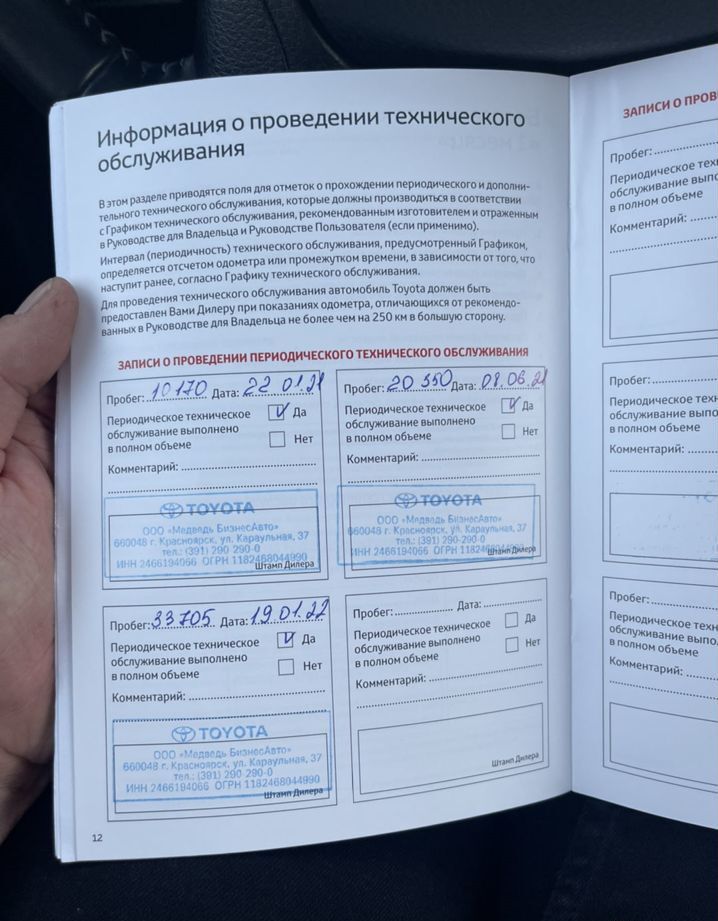 Информация о проведении технического
обслуживания
В этом разделе приводятся поля для отметок о прохождении периодического и дополни-
тельного технического обслуживания, которые должны производиться в соответствии
с Графиком технического обслуживания, рекомендованным изготовителем и отраженным
в Руководстве для Владельца и Руководстве Пользователя (если применимо).
Интервал (периодичность) технического обслуживания, предусмотренный Графиком,
определяется отсчетом одометра или промежутком времени, в зависимости от того, что
наступит ранее, согласно Графику технического обслуживания.
Для проведения технического обслуживания автомобиль Toyota должен быть
предоставлен Вами Дилеру при показаниях одометра, отличающихся от рекомендо-
ванных в Руководстве для Владельца не более чем на 250 км в большую сторону.
ЗАПИСИ О ПРОВЕДЕНИИ ПЕРИОДИЧЕСКОГО ТЕХНИЧЕСКОГО ОБСЛУЖИВАНИЯ
Пробег: 10170 Дата: 22.01.21
Периодическое техническое
обслуживание выполнено
в полном объеме
Да
Нет
Комментарий:
TOYOTA
ООО «Медведь БизнесАвто»
660048 г. Красноярск, ул. Караульная, 37
тел.: (391) 290-290-0
ИНН 2466194066 ОГРН 1182468044990
Штамп Дилера
Пробег: 20 350 Дата: 08.06.21
Периодическое техническое
обслуживание выполнено
в полном объеме
Да
Нет
Комментарий:
TOYOTA
ООО «Медведь БизнесАвто»
660048 г. Красноярск, ул. Караульная, 37
тел.: (391) 290-290-0
ИНН 2466194066 ОГРН 1182468044990
Штамп Дилера
Пробег: 33705 Дата: 19.01.22
Периодическое техническое
обслуживание выполнено
в полном объеме
Да
Нет
Комментарий:
TOYOTA
ООО «Медведь БизнесАвто»
660048 г. Красноярск, ул. Караульная, 37
тел.: (391) 290-290-0
ИНН 2466194066 ОГРН 1182468044990
Штамп Дилера
Пробег: Дата:
Периодическое техническое
обслуживание выполнено
в полном объеме
Да
Нет
Комментарий:
Штамп Дилера
12
ЗАПИСИ О ПРОВ
Пробег:
Периодическое техн
обслуживание выпо
в полном объеме
Комментарий:
Пробег:
Периодическое техн
обслуживание выпо
в полном объеме
Комментарий:
Пробег:
Периодическое техн
обслуживание выпо
в полном объеме
Комментарий: